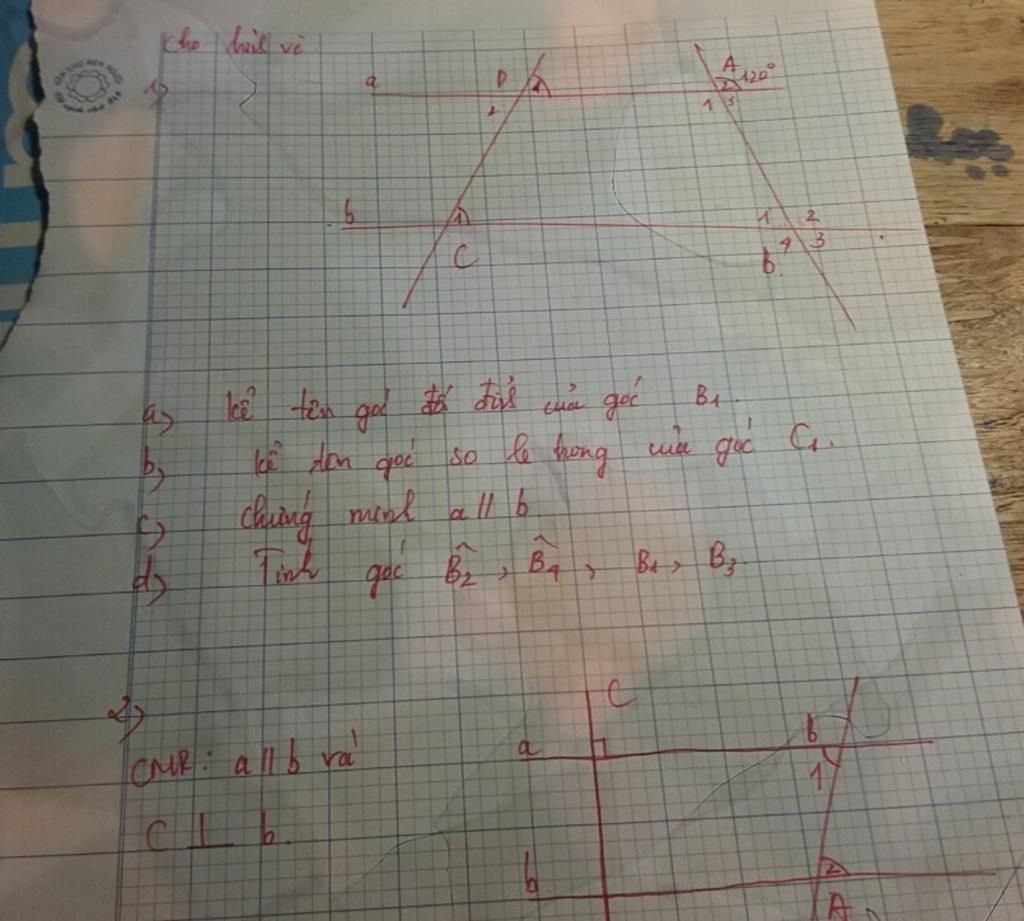 cho hình vẽ
1)
a D 1 2 A 120° 2 1 3
b 1 C 1 2 4 3 b
a) kể tên góc đối đỉnh của góc B1.
b) kể tên góc so le trong của góc C1.
c) chứng minh a // b
d) Tính góc B̂2, B̂4, B1, B3.
2)
CMR: a // b và
C ⊥ b.
C
a b 1
b 2
A